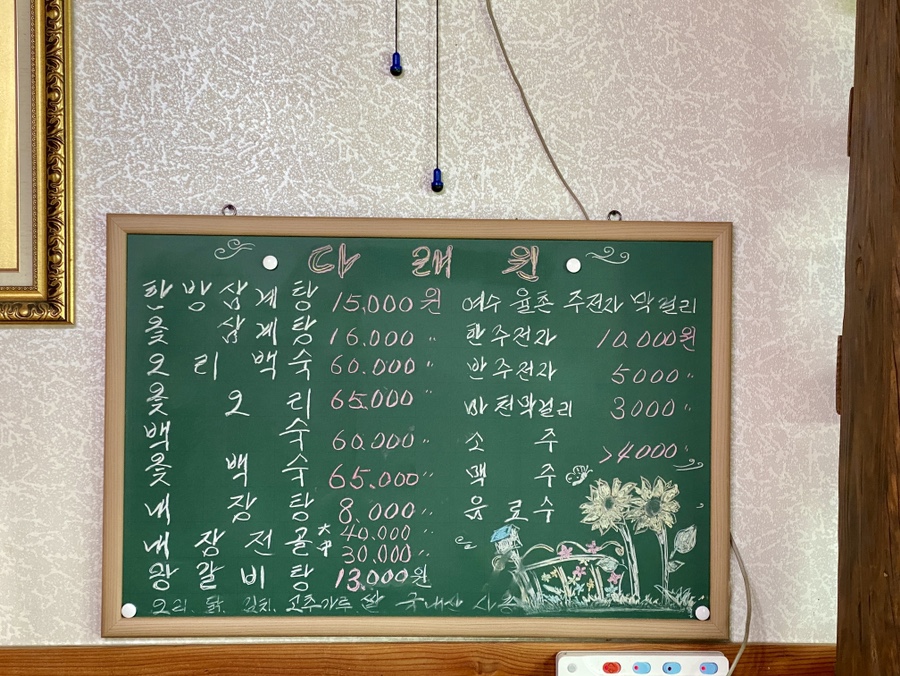 다래원
한방삼계탕 15,000원
옻삼계탕 16.000 〃
오리백숙 60.000 〃
옻오리 65.000 〃
백숙 60.000 〃
옻백숙 65.000 〃
내장탕 8.000 〃
내장전골 大 40.000 〃
中 30.000 〃
왕갈비탕 13.000원
오리. 닭. 김치. 고추가루 쌀 국내산
여수 율촌 주전자 막걸리
한주전자 10.000원
반주전자 5000 〃
막걸리 3000 〃
소주
>4000 〃
맥주
음료수